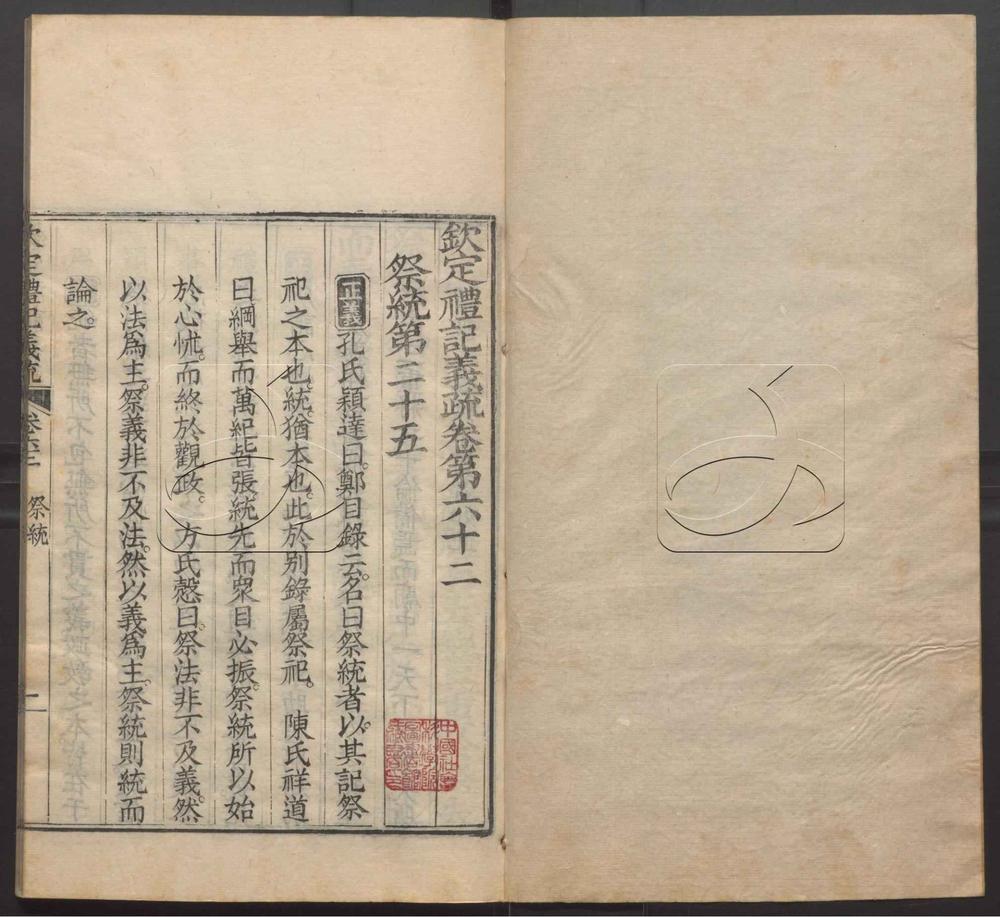 欽定禮記義疏卷第六十二
祭統第二十五
正義孔氏穎達曰。鄭目錄云。名曰祭統者。以其記祭
祀之本也。統猶本也。此於別錄屬祭祀。陳氏祥道
曰綱舉而萬紀皆張統先而眾目必振。祭統所以始
於心怵。而終於觀政。方氏慤曰。祭法非不及義。然
以法為主。祭義非不及法。然以義為主。祭統則統而
論之。
欽定禮記義疏
祭統
一
中國社會
科學院